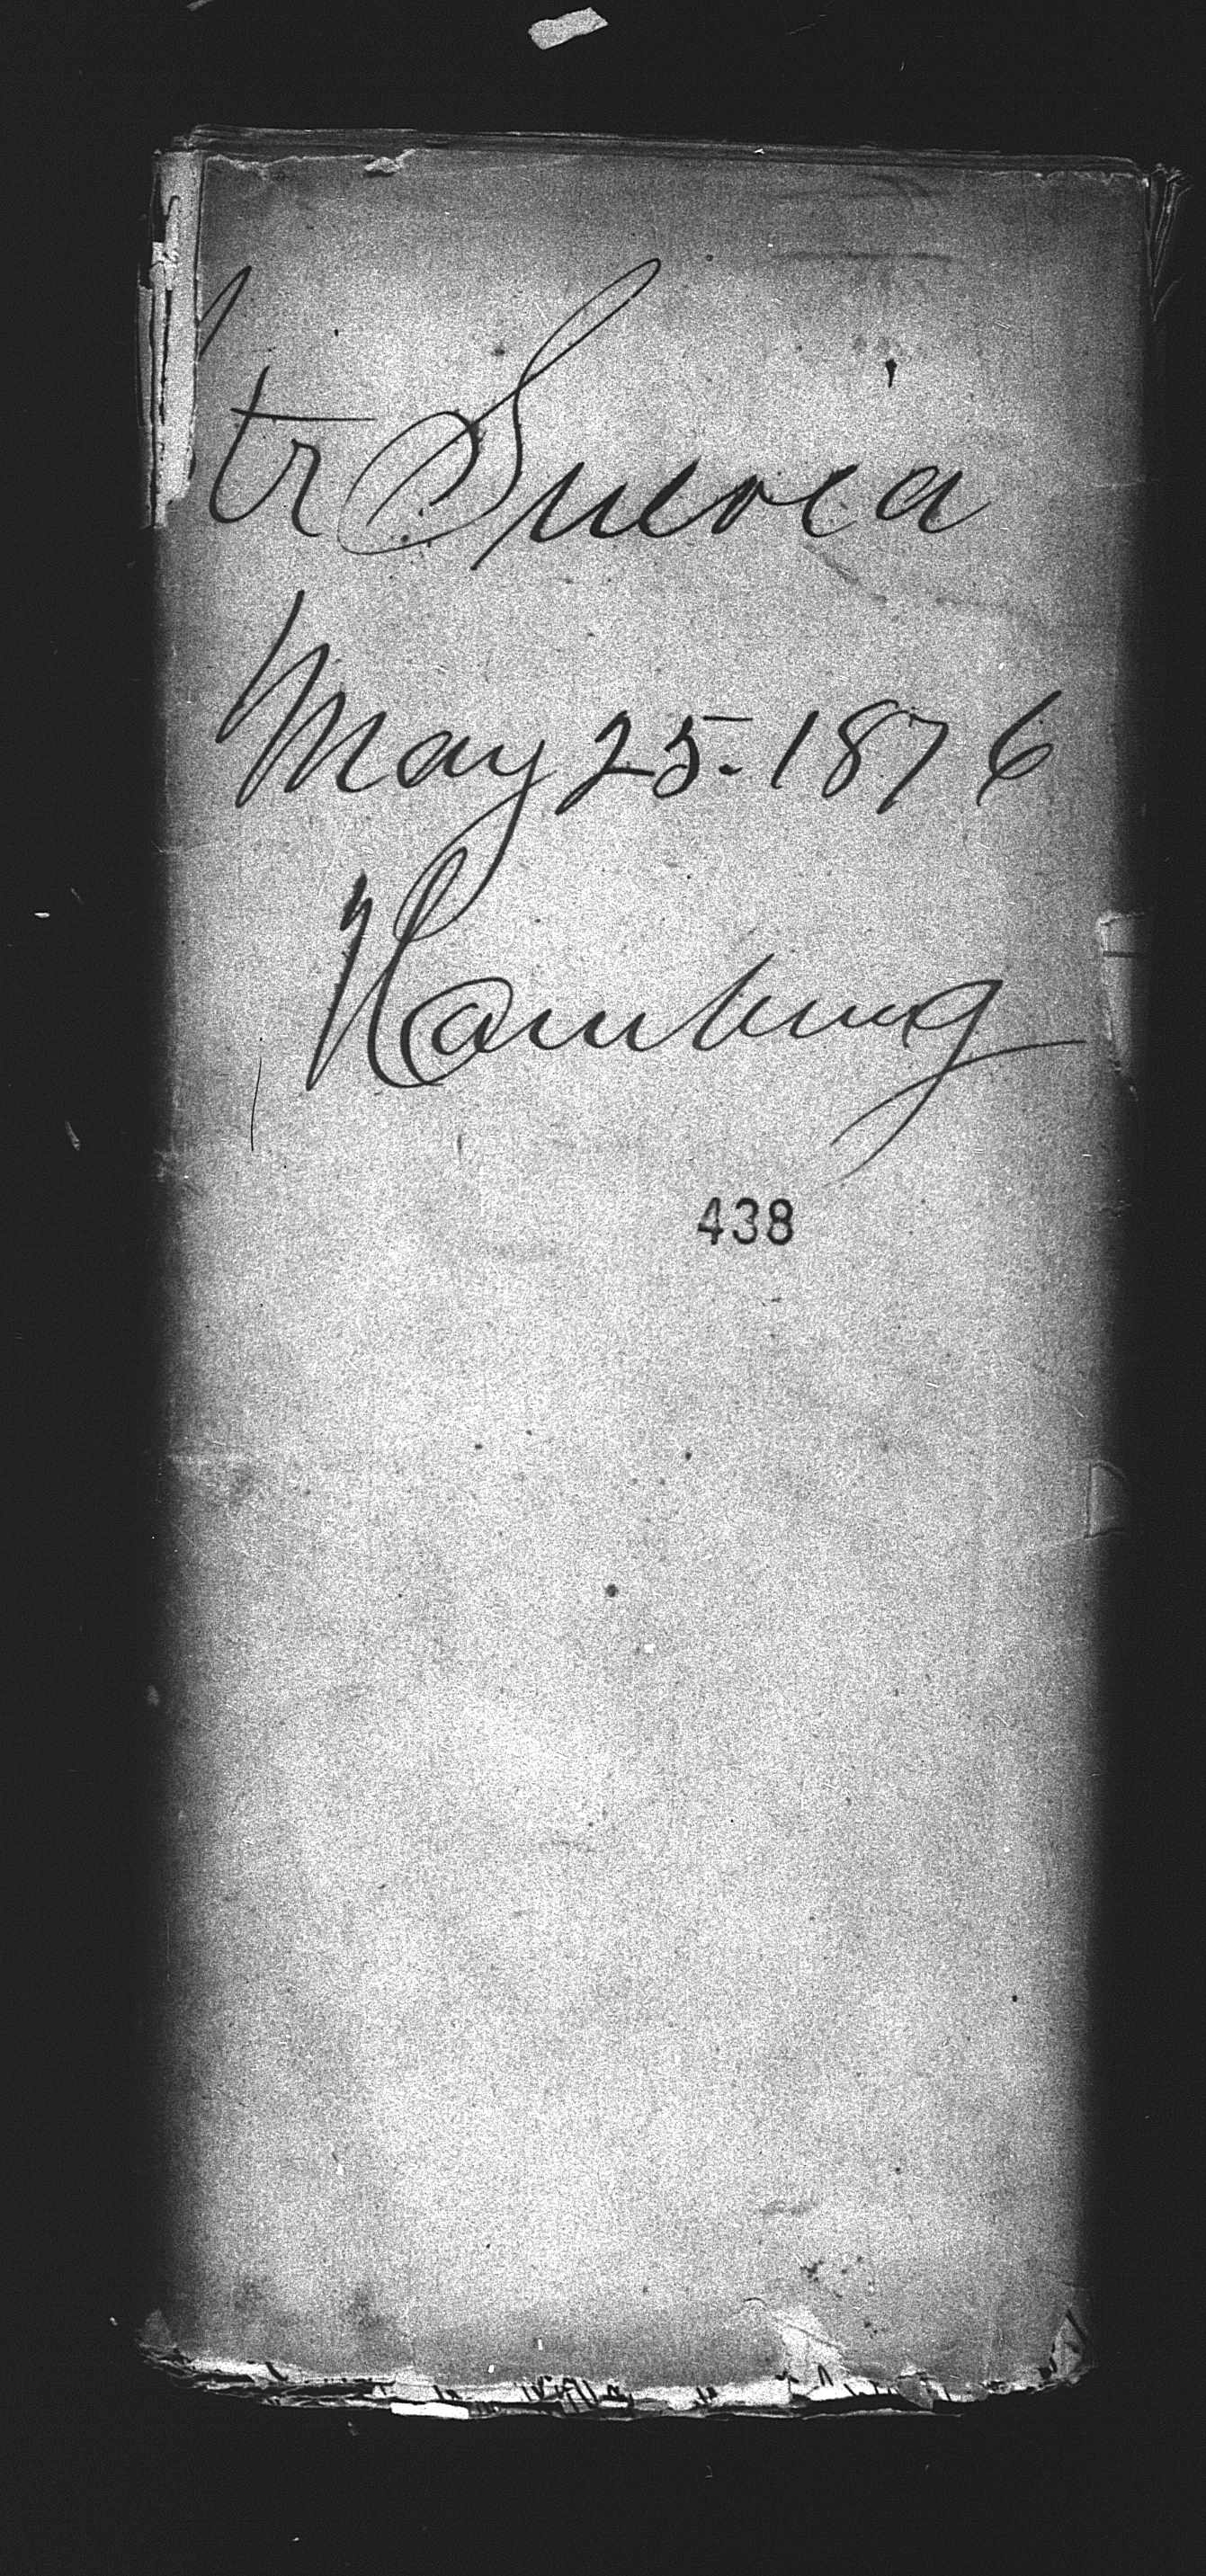 Str Suevia
May 25. 1876
Hamburg
438